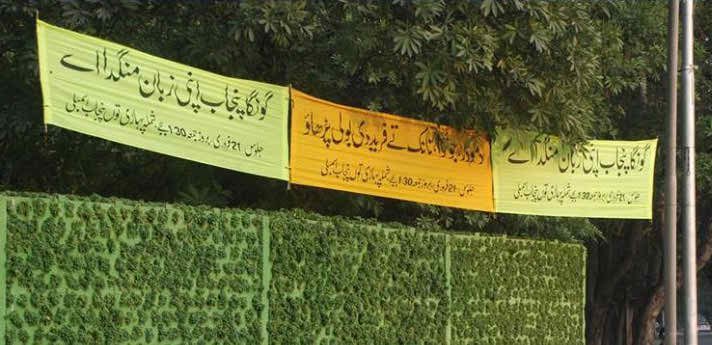 گونگا پنجاب اپنی زبان منگدا اے
جلوس 21 فروری، بروز جمعہ 1:30 بجے، شملہ پہاڑی توں پنجاب اسمبلی
نانک تے فرید دی بولی پڑھاؤ
جلوس 21 فروری، بروز جمعہ 1:30 بجے، شملہ پہاڑی توں پنجاب اسمبلی
گونگا پنجاب اپنی زبان منگدا اے
جلوس 21 فروری، بروز جمعہ 1:30 بجے، شملہ پہاڑی توں پنجاب اسمبلی